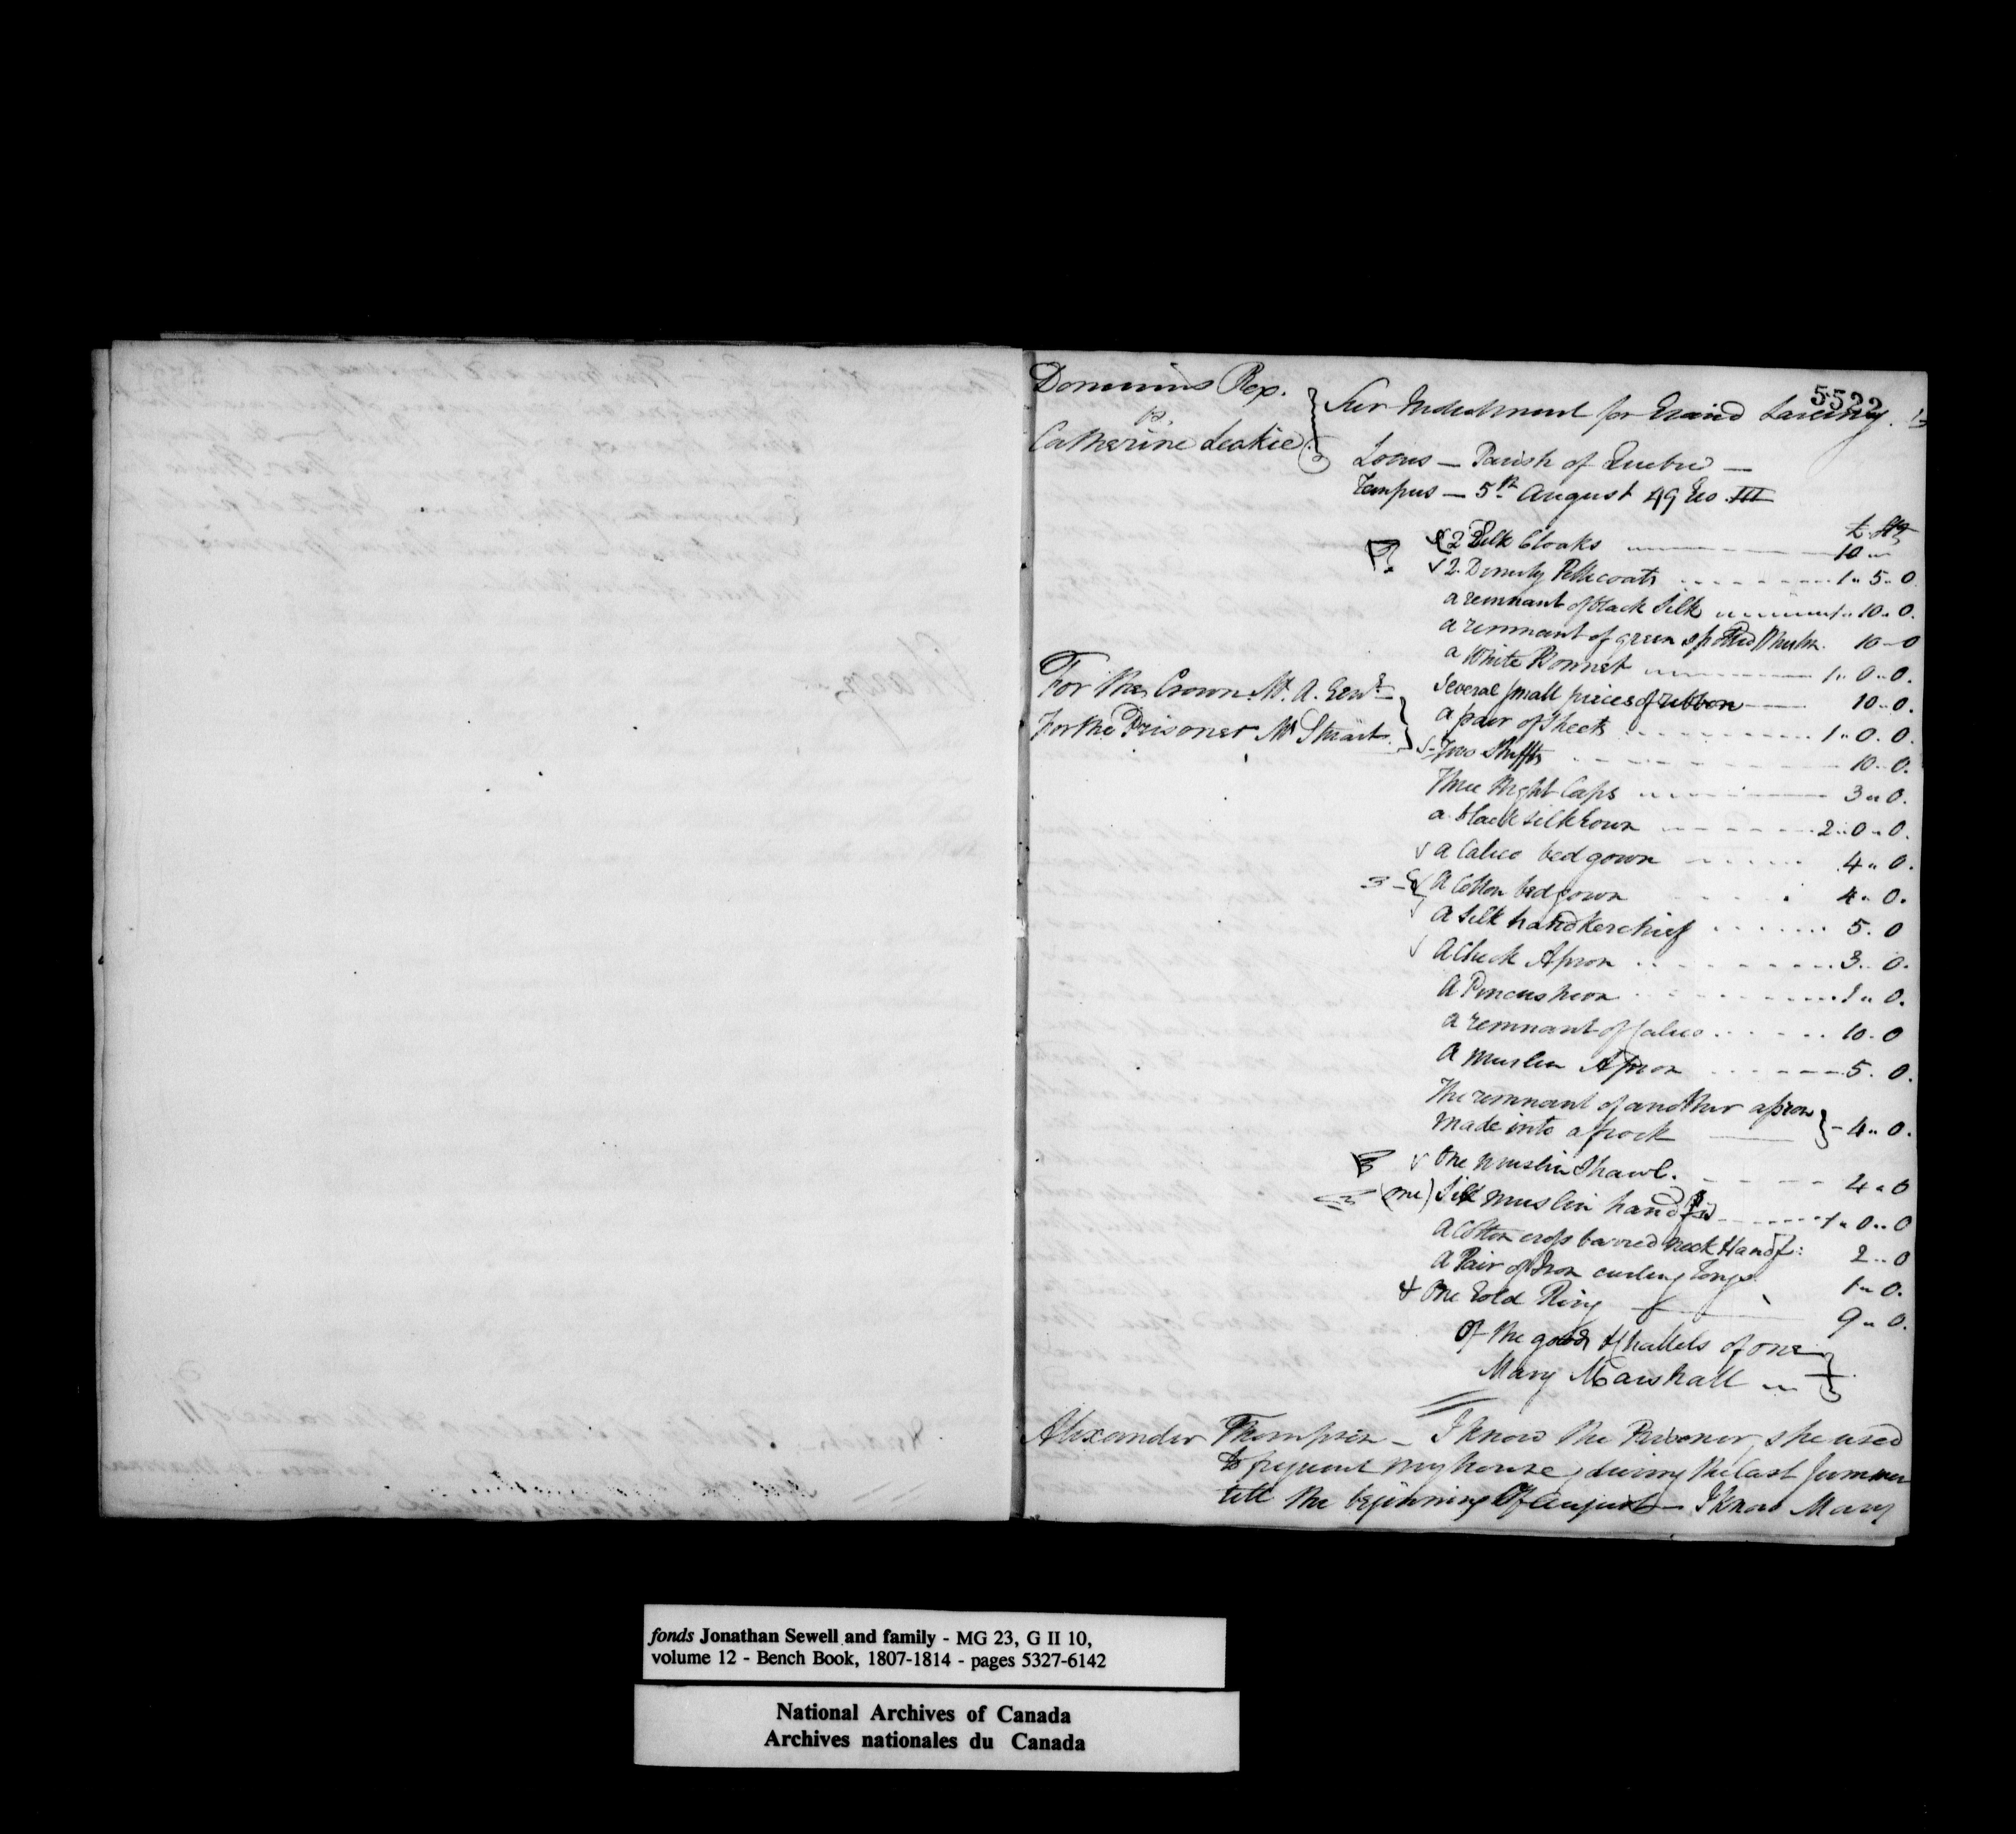 5522
Dominus Rex.
vs.
Catherine Leakie
Sur Indictment for Grand Larceny.
Locus — Parish of Quebec —
Tempus — 5th August 49 Geo. III
£ Stg
2 Silk Cloaks 10 "
2 Dimity Petticoats 1 " 5 " 0
a remnant of black Silk 1 " 10 " 0.
a remnant of green spotted Muslin. 10 - 0
a White Bonnet 1 " 0 " 0.
Several small pieces of ribbon 10 " 0.
a pair of Sheets 1 " 0 . 0
Two Shifts 10 " 0.
Three Night Caps 3 " 0.
a black silk Gown 2 " 0 " 0.
a Calico bed gown 4 " 0.
3 a Cotton bed gown 4 " 0.
a Silk handkerchief 5 . 0
a Check Apron 3 . 0.
a Pincushion 1 " 0.
a remnant of Calico 10 . 0
a muslin Apron 5 . 0.
The remnant of another apron
made into a frock 4 " 0.
One muslin Shawl. 4 " 0
(one) Silk muslin handfs 1 " 0 " 0
a Cotton cross barred neck Handf: 2 " 0
a Pair of Iron curling Tongs 1 " 0.
& One Gold Ring 9 " 0.
Of the goods & Chattels of one
Mary Marshall
For the Crown Mr. A. Genl
For the Prisoner Mr Stuart.
Alexander Thompson — I know the Prisoner, she used
to frequent my house, during the last Summer
till the beginning of August — I know Mary
fonds Jonathan Sewell and family - MG 23, G II 10,
volume 12 - Bench Book, 1807-1814 - pages 5327-6142
National Archives of Canada
Archives nationales du Canada